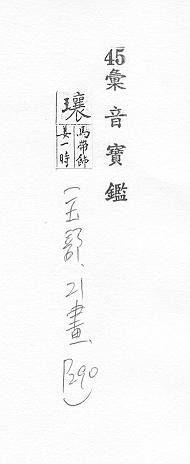 45彙音寶鑑
瓖
馬帶飾
姜一時
(玉部、21畫、P290)